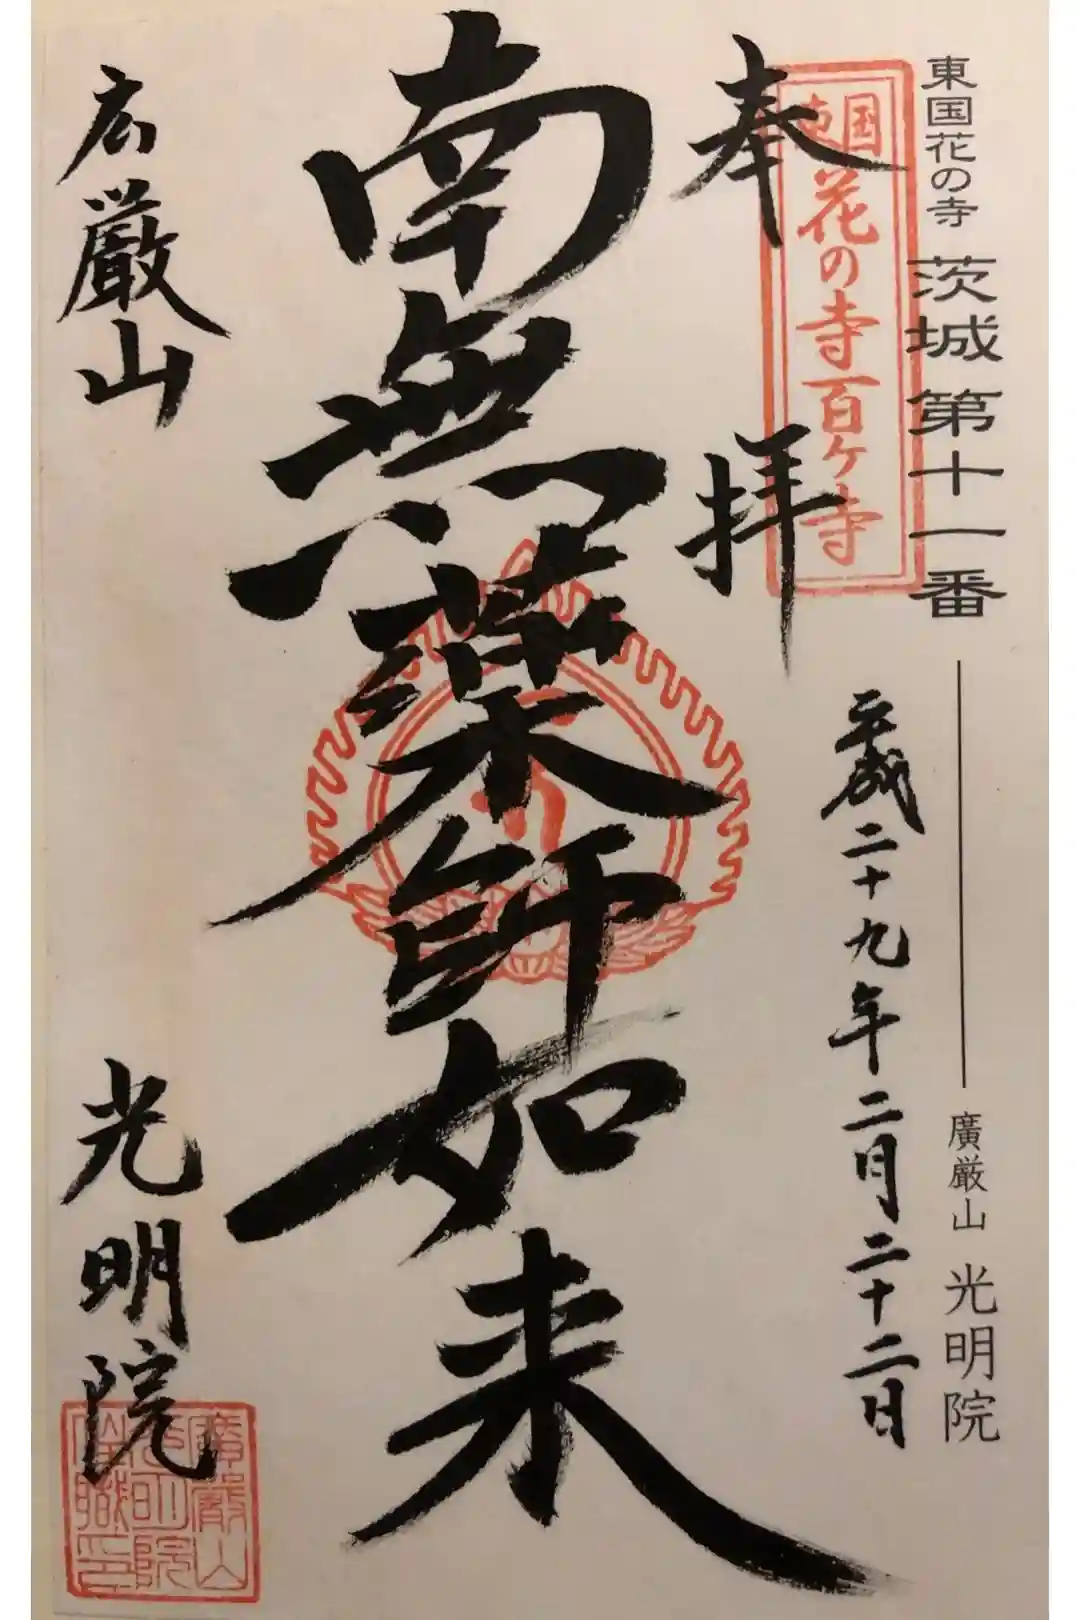 東国花の寺 茨城第十一番
廣厳山 光明院
国東
花の寺百ヶ寺
奉拝
平成二十九年二月二十二日
南無薬師如来
広厳山
光明院
廣嚴山
光明院
職印